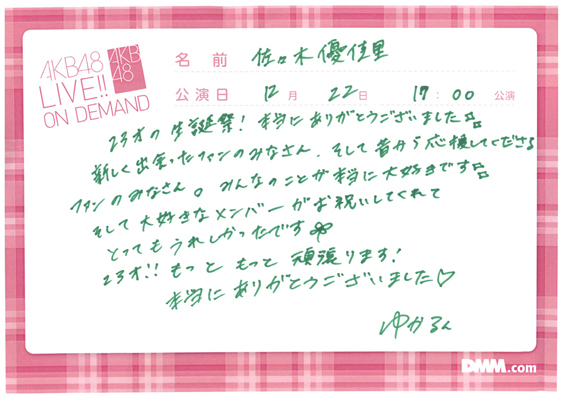 AKB48
LIVE!!
ON DEMAND
AKB
48
名前 佐々木優佳里
公演日 12月 22日 17:00 公演
23才の生誕祭! 本当にありがとうございました
新しく出会ったファンのみなさん、そして昔から応援してくださる
ファンのみなさん。みんなのことが本当に大好きです
そして大好きなメンバーがお祝いしてくれて
とってもうれしかったです
23才!! もっともっと頑張ります!
本当にありがとうございました♡
ゆかるん
DMM.com